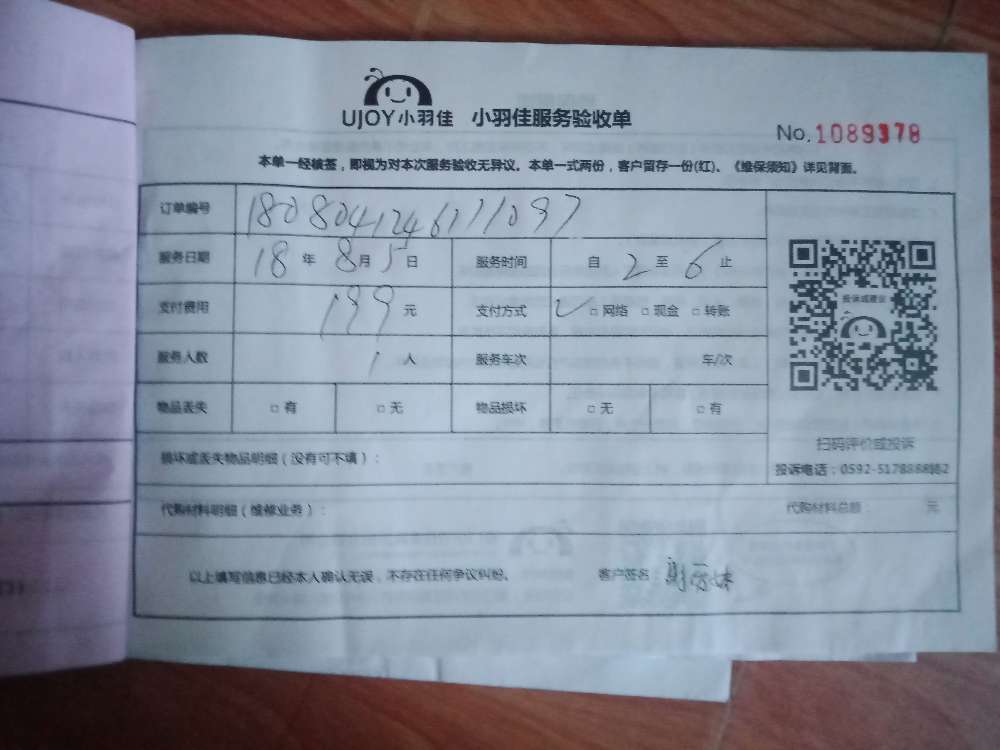 UJOY小羽佳 小羽佳服务验收单
No.1089378
本单一经核签，即视为对本次服务验收无异议。本单一式两份，客户留存一份(红)、《维保须知》详见背面。
订单编号 180804124611097
服务日期 18年8月5日 服务时间 自2至6止
支付费用 199元 支付方式 ✓□网络 □现金 □转账
服务人数 1人 服务车次 车/次
物品丢失 □有 □无 物品损坏 □无 □有
投诉或建议
扫码评价或投诉
损坏或丢失物品明细（没有可不填）：
投诉电话：0592-5178868
代购材料明细（维修业务）： 代购材料总额： 元
以上填写信息已经本人确认无误，不存在任何争议纠纷。 客户签名：谢丽妹